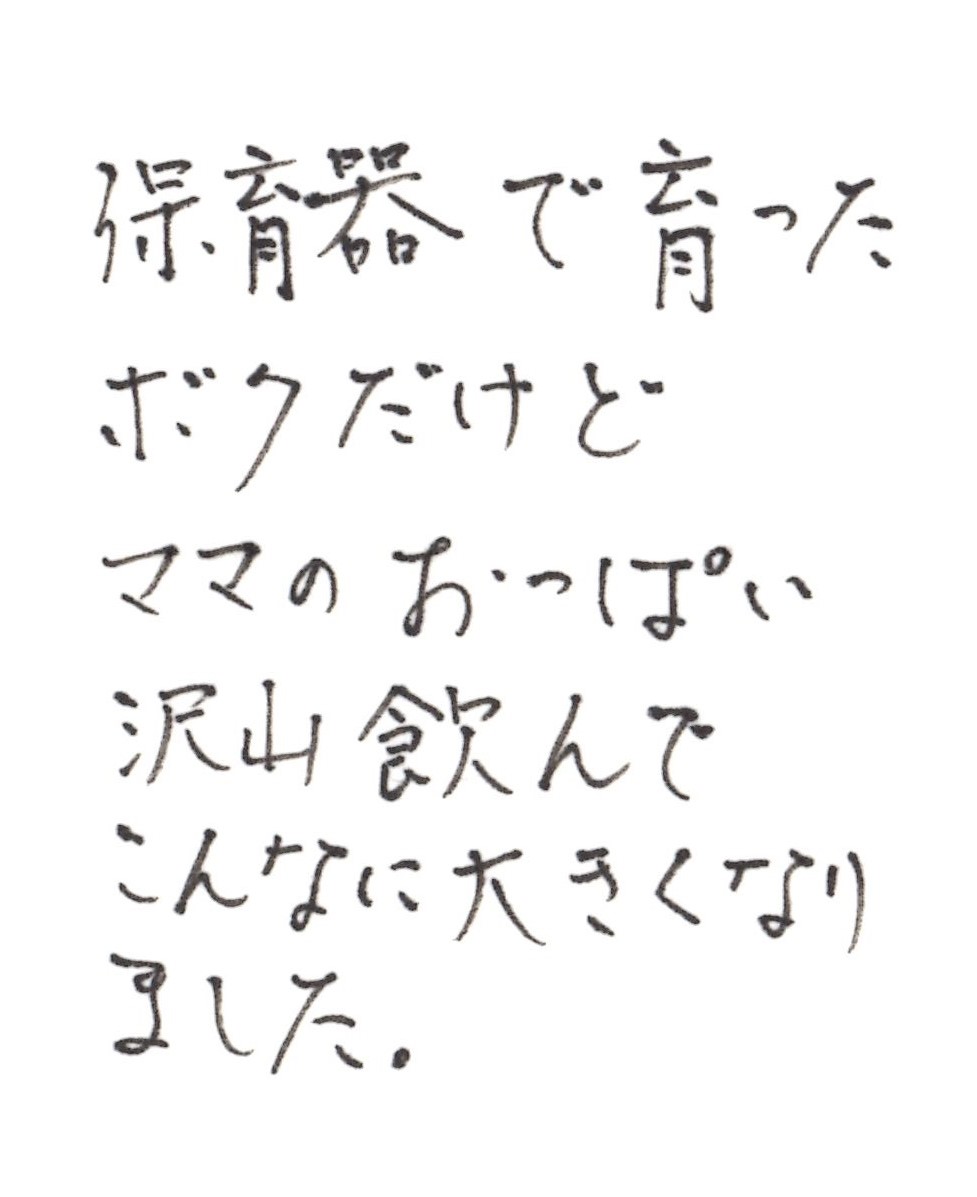 保育器で育った
ボクだけど
ママのおっぱい
沢山飲んで
こんなに大きくなり
ました。